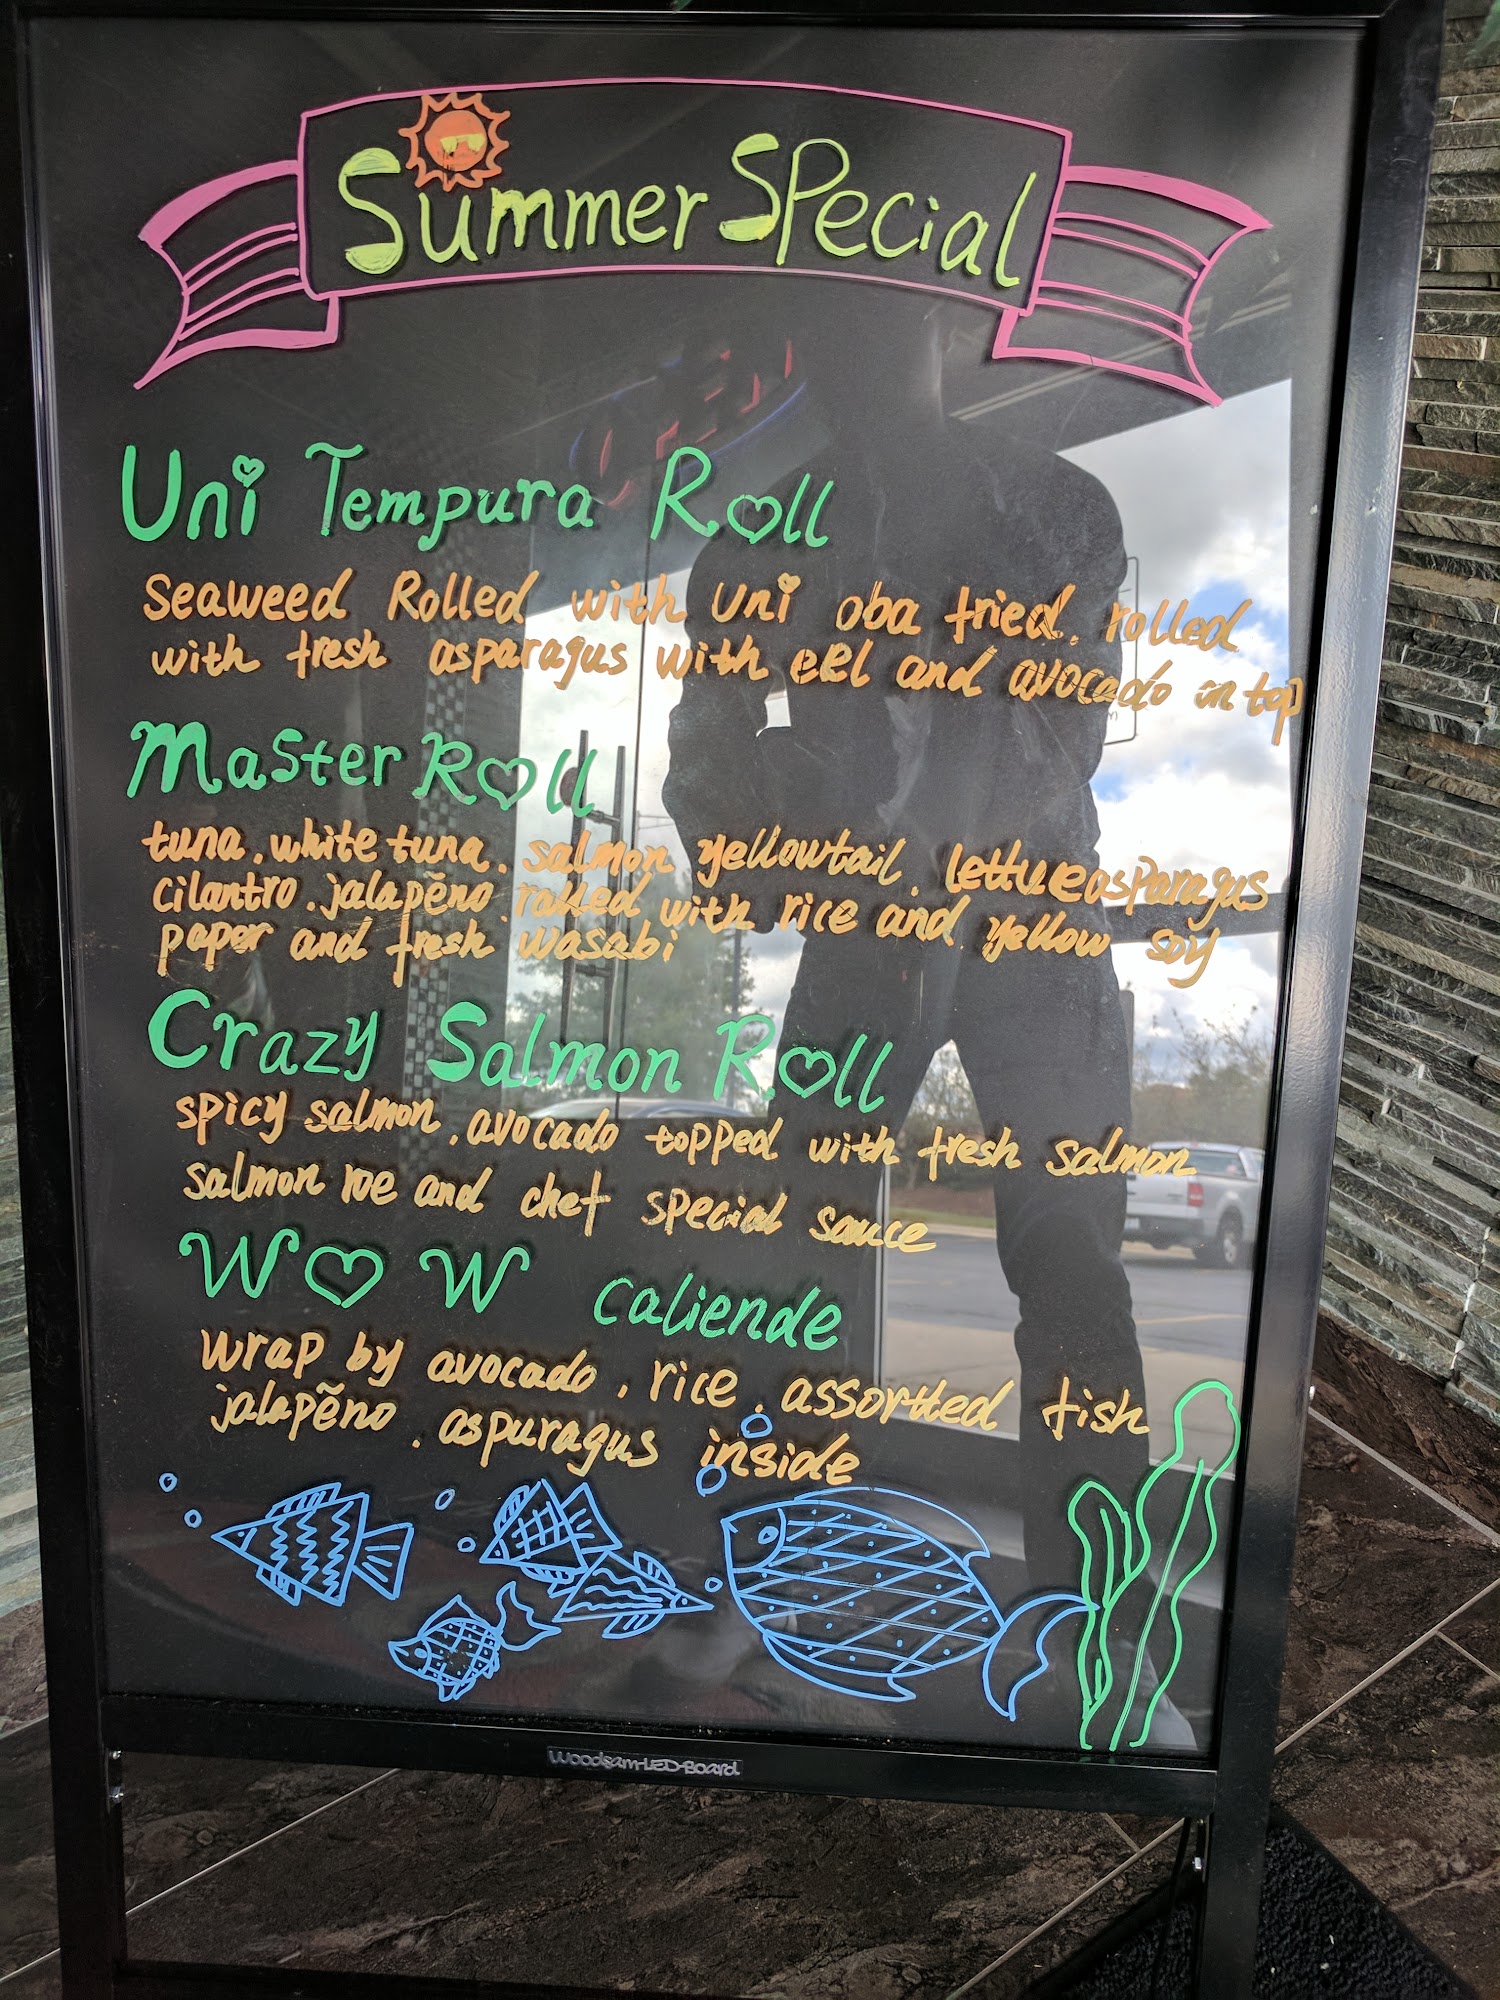 Summer Special
Uni Tempura Roll
Seaweed Rolled with uni oba fried, rolled
with fresh asparagus with eel and avocado on top
Master Roll
tuna, white tuna, salmon yellowtail, lettuce asparagus
cilantro, jalapẽno, rolled with rice and yellow soy
paper and fresh wasabi
Crazy Salmon Roll
spicy salmon, avocado topped with fresh salmon
salmon roe and chef special sauce
WOW caliende
wrap by avocado, rice, assortted fish
jalapẽno, aspuragus inside
Woodsam-LED-Board
OPEN